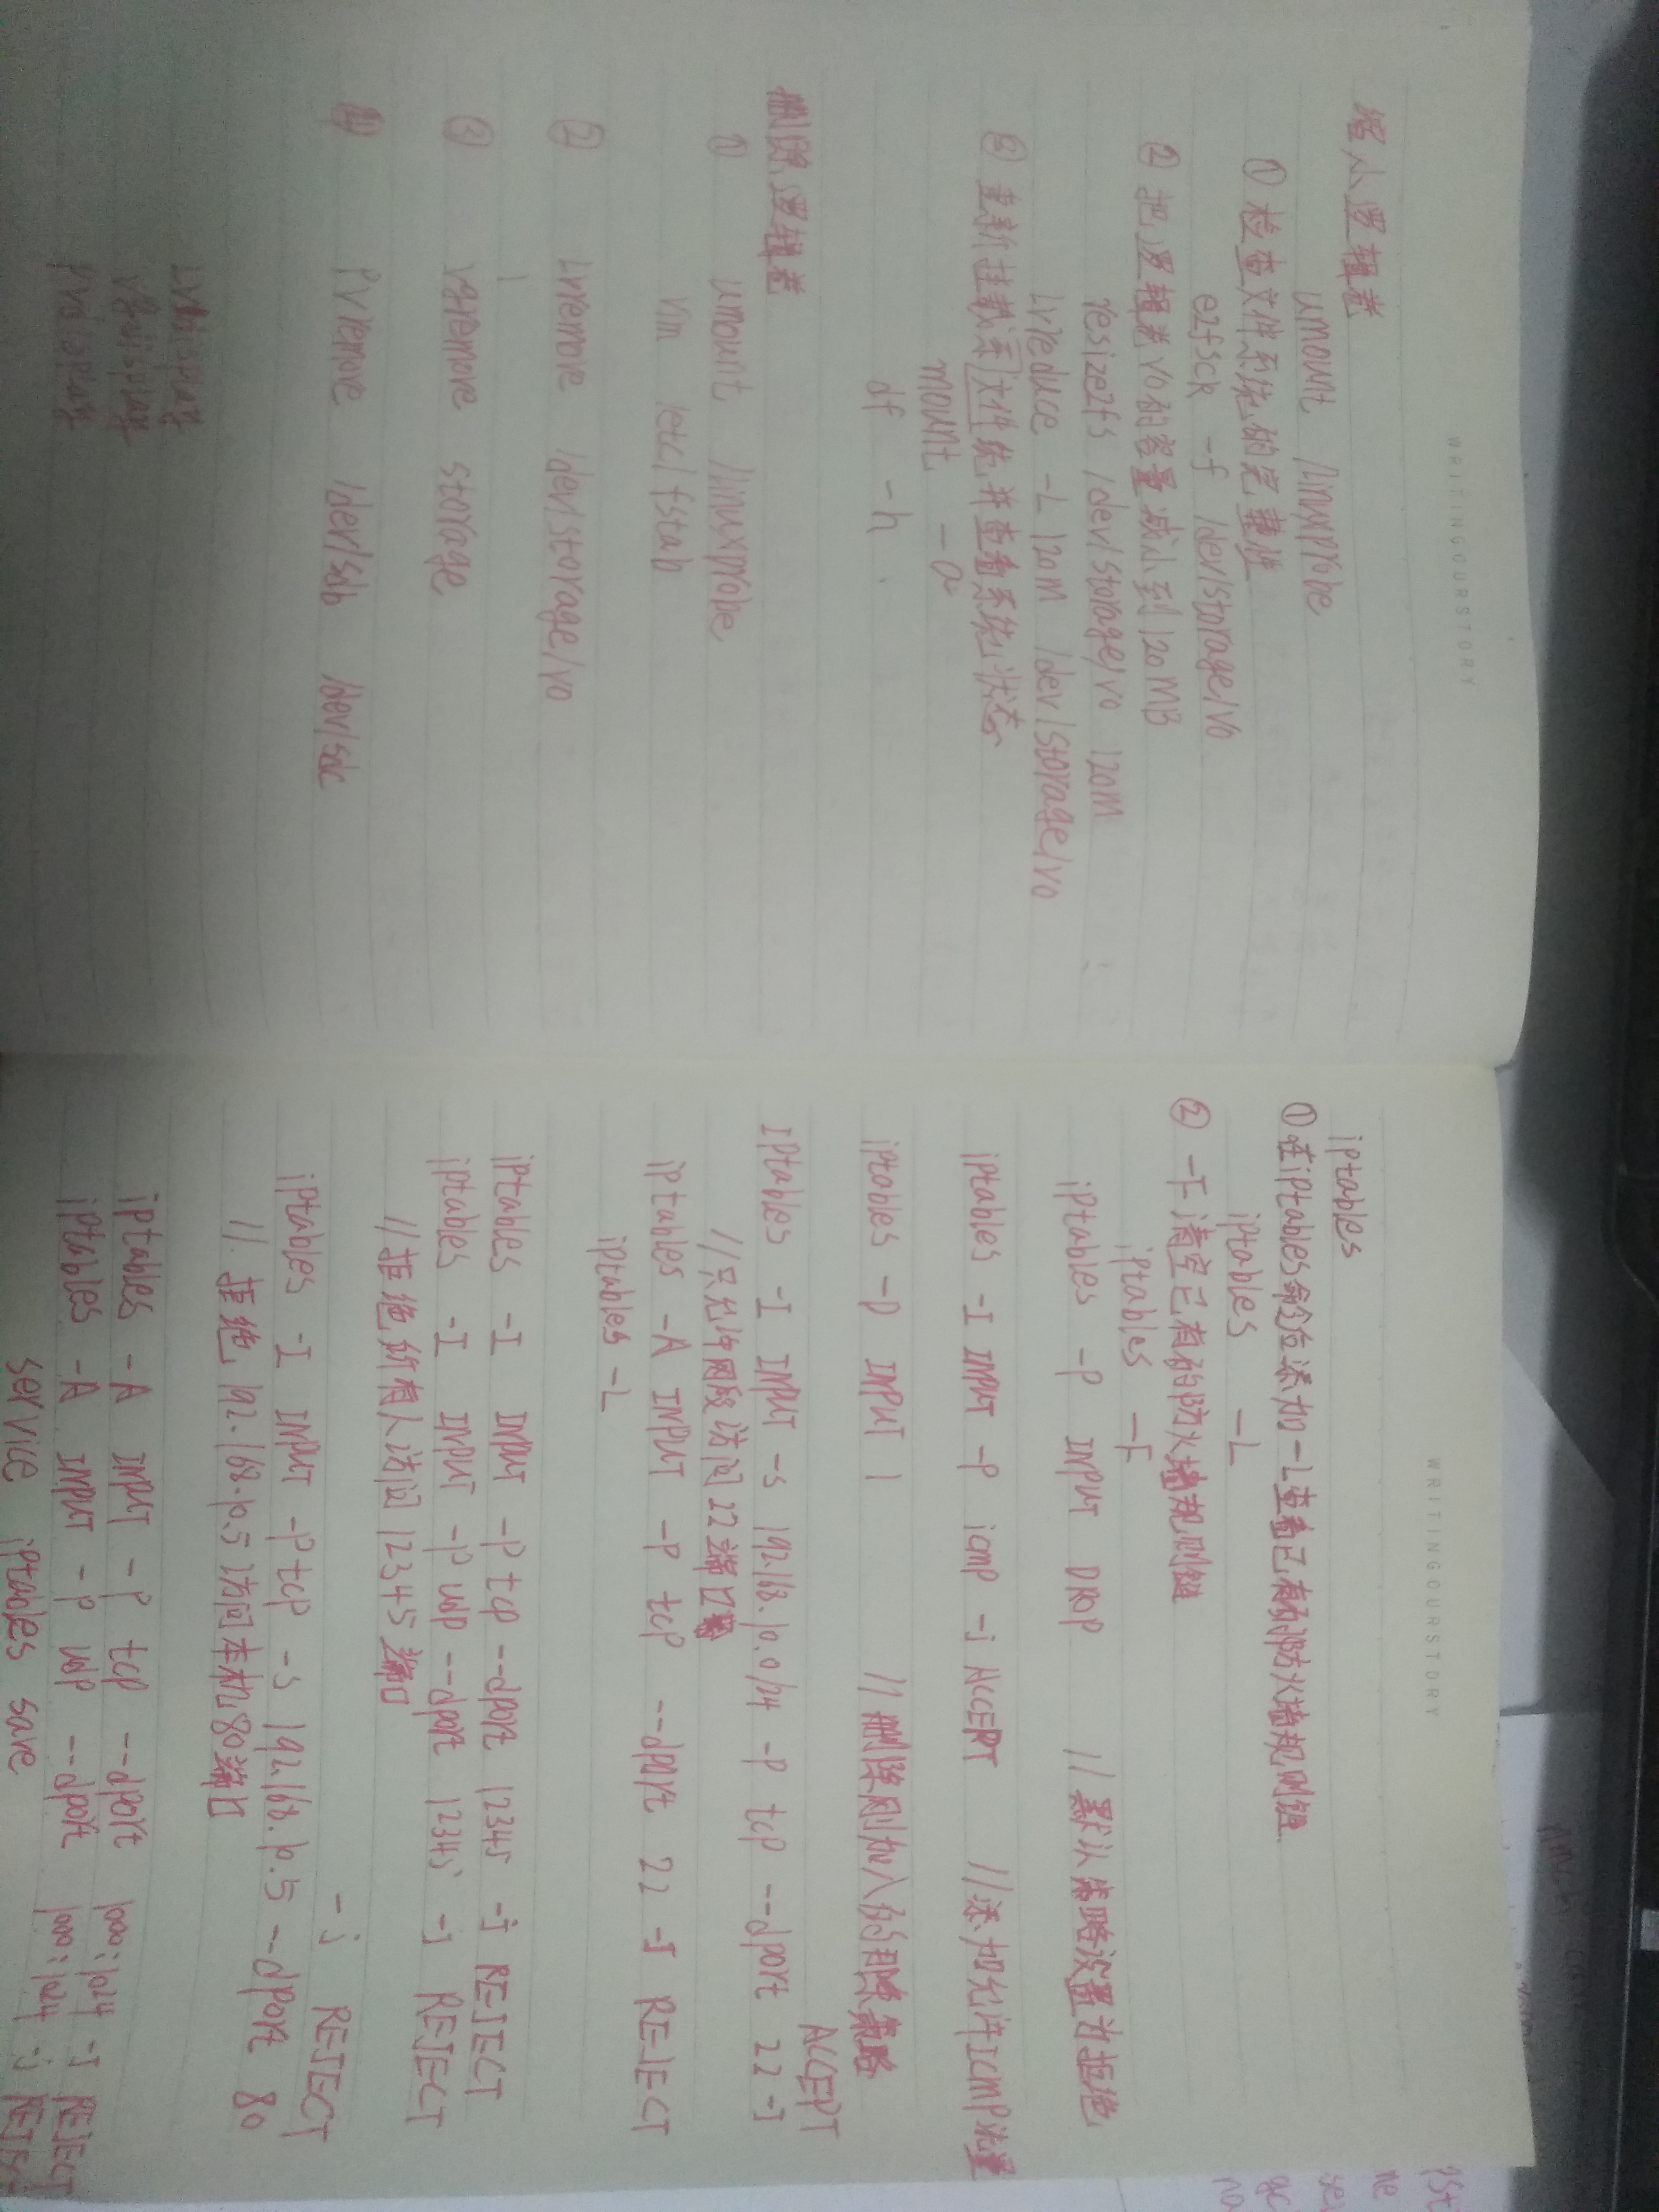 WRITINGOURSTORY
缩小逻辑卷
umount /linuxprobe
① 检查文件系统的完整性
e2fsck -f /dev/storage/vo
② 把逻辑卷vo的容量减小到120MB
resize2fs /dev/storage/vo 120M
lvreduce -L 120M /dev/storage/vo
③ 重新挂载系文件统并查看系统状态
mount -a
df -h
删除逻辑卷
① umount /linuxprobe
vim /etc/fstab
② lvremove /dev/storage/vo
③ vgremove storage
④ pvremove /dev/sdb /dev/sdc
lvdisplay
vgdisplay
pvdisplay
WRITINGOURSTORY
iptables
①在iptables命令后添加-L查看已有的防火墙规则链
iptables -L
② -F 清空已有的防火墙规则链
iptables -F
iptables -P INPUT DROP //默认策略设置为拒绝
iptables -I INPUT -p icmp -j ACCEPT //添加允许ICMP流量
iptables -D INPUT 1 //删除刚加入的 策略
iptables -I INPUT -s 192.168.10.0/24 -p tcp --dport 22 -j ACCEPT
//只允许网段访问22端口
iptables -A INPUT -p tcp --dport 22 -j REJECT
iptables -L
iptables -I INPUT -p tcp --dport 12345 -j REJECT
iptables -I INPUT -p udp --dport 12345 -j REJECT
//拒绝所有人访问12345端口
iptables -I INPUT -p tcp -s 192.168.10.5 --dport 80 -j REJECT
//. 拒绝 192.168.10.5访问本机80端口
iptables -A INPUT -p tcp --dport 1000:1024 -j REJECT
iptables -A INPUT -p udp --dport 1000:1024 -j REJECT
service iptables save